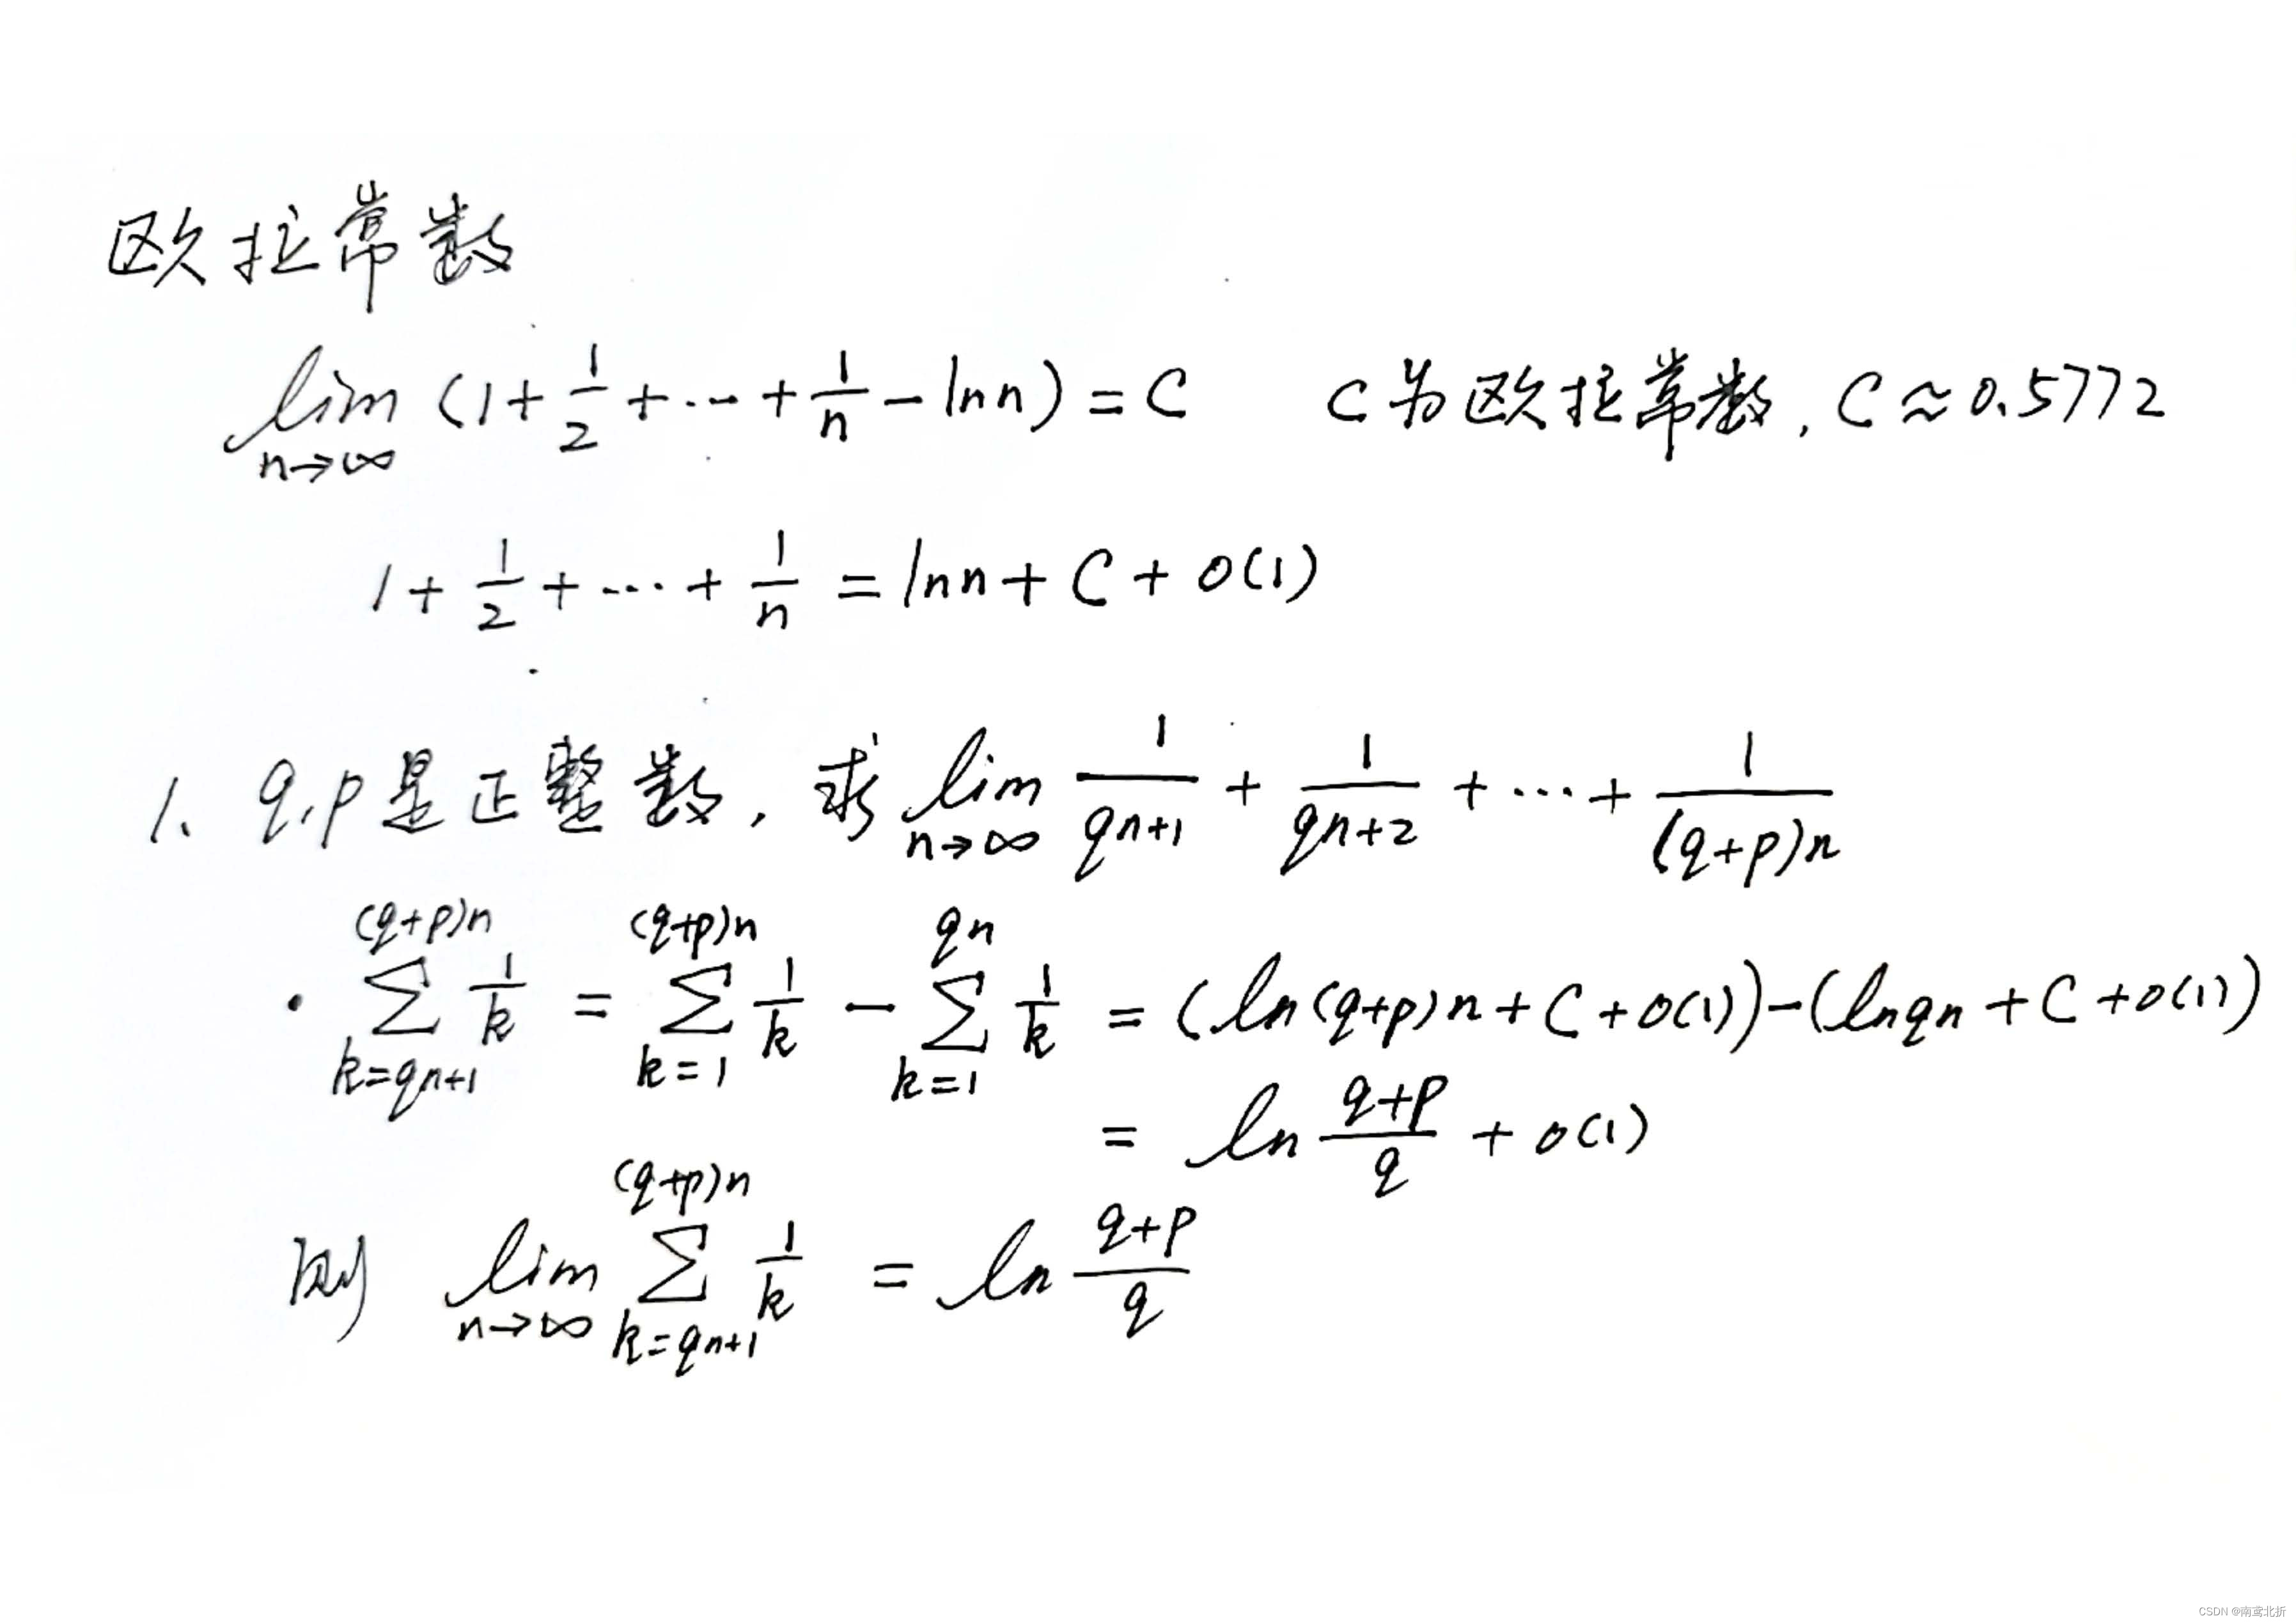 欧拉常数
lim_{n→∞} (1 + 1/2 + ··· + 1/n − ln n) = C  C为欧拉常数, C ≈ 0.5772
1 + 1/2 + ··· + 1/n = ln n + C + o(1)
1、q,p是正整数, 求 lim_{n→∞} 1/(qn+1) + 1/(qn+2) + ··· + 1/((q+p)n)
· ∑_{k=qn+1}^{(q+p)n} 1/k = ∑_{k=1}^{(q+p)n} 1/k − ∑_{k=1}^{qn} 1/k = (ln(q+p)n + C + o(1)) − (ln qn + C + o(1))
= ln (q+p)/q + o(1)
则 lim_{n→∞} ∑_{k=qn+1}^{(q+p)n} 1/k = ln (q+p)/q
CSDN @南鸢北折